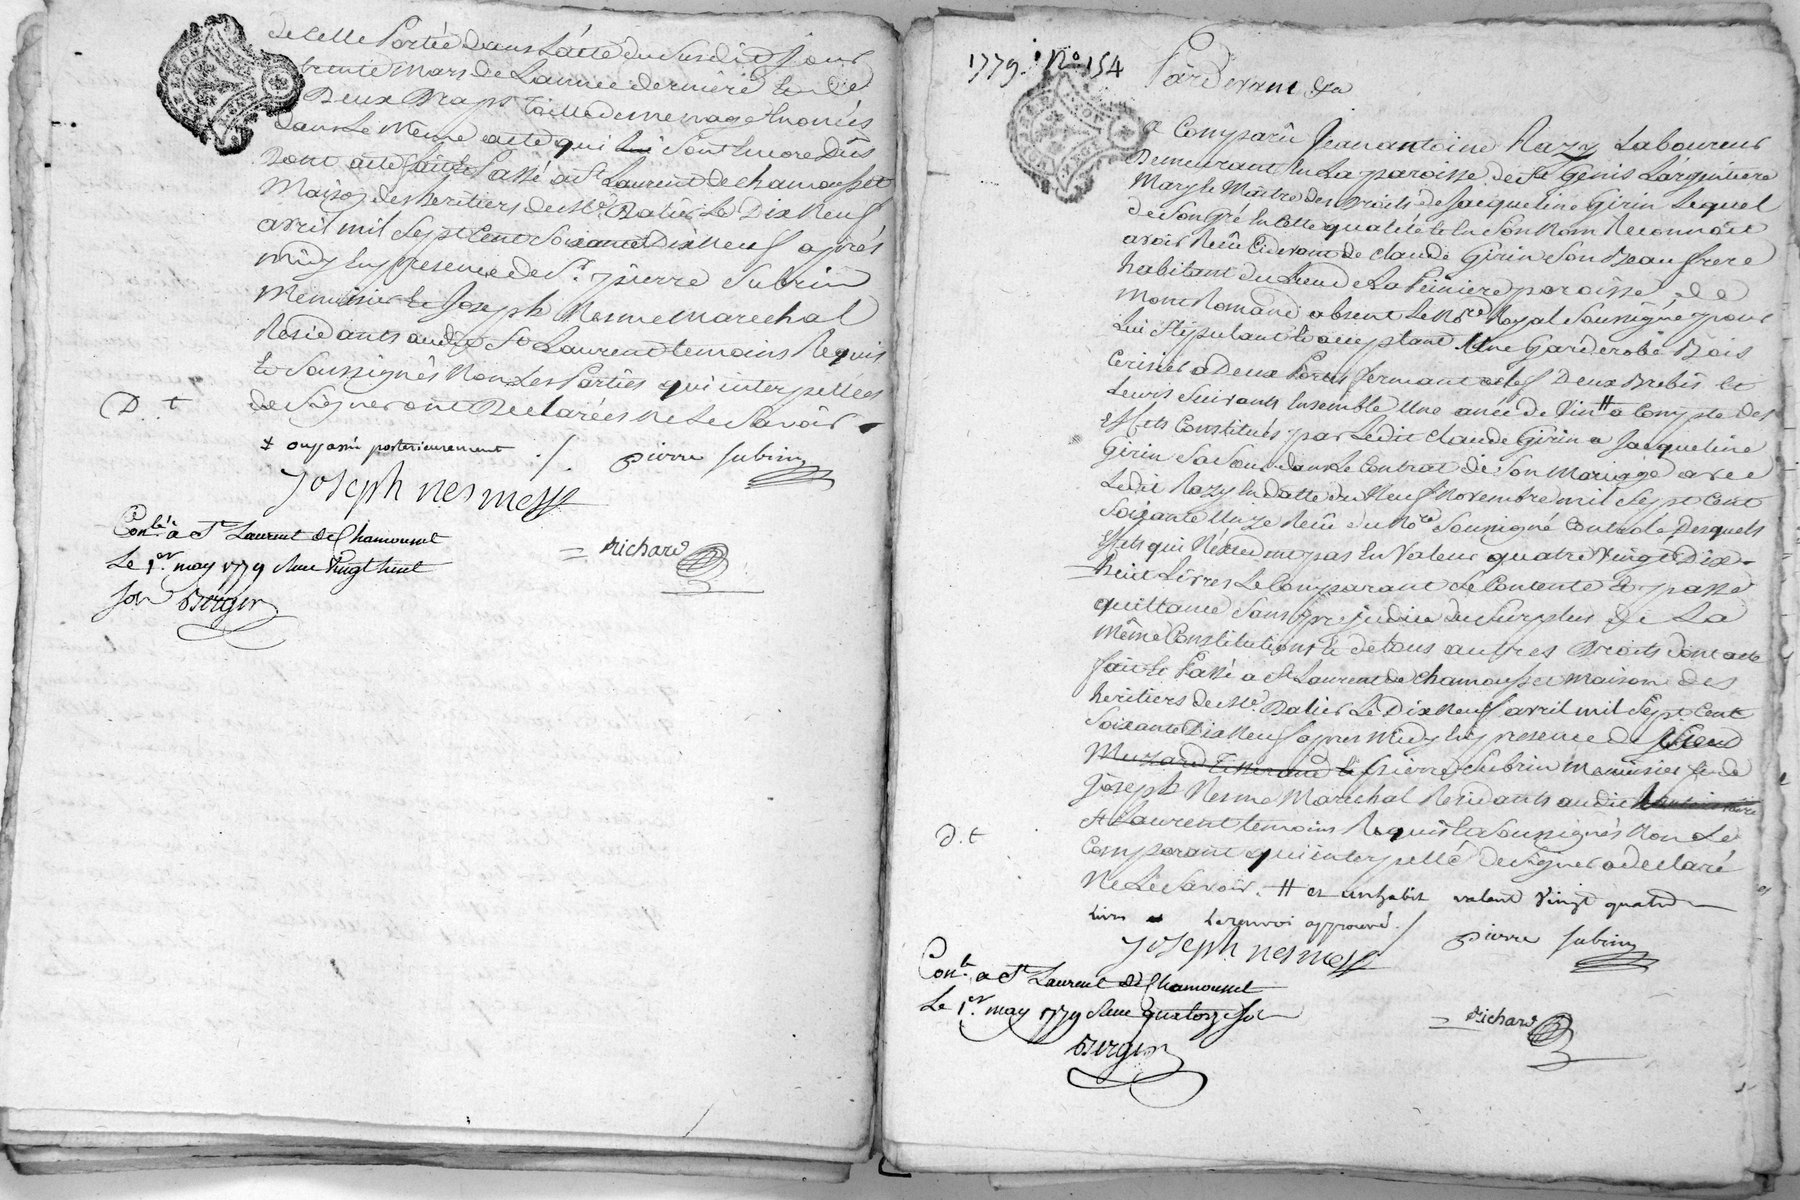 de celle Portée Dans L'acte du Susdit Jour
trente Mars de L'année derniere &
Deux Draps toille de menage Enoncés
dans Le Même acte qui Sont Encore Dûs
Dont acte fait & Passé a St. Laurent de chamousset
Maison des heritiers de Me. Dalier Le Dix Neuf
avril mil Sept Cent Soixante Dix Neuf après
Midy En presence de Sr. pierre Subrin
Menuisier & Joseph Nesme Marechal
Residants audit St Laurent temoins Requis
& Soussignés Non Les Parties qui interpellées
de Signer ont Declarées Ne Le Savoir
D. t
+ ou passé posterieurement ./. pierre Subrin
Joseph nesme
Conlé. a St. Laurent de Chamousset
Le 1er. may 1779 Reçu Vingt huit
sols Berger
= Richard
1779. No 154
Pardevant
a Comparû Jean antoine Razy Laboureur
Demeurant En La paroisse de St Genis L'argentiere
Mary & Maître des Droits de Jacqueline Girin Lequel
de Son Gré En Cette qualité & En Son Nom Reconnoit
avoir Reçu Cidevant de Claude Girin Son Beau frere
habitant du Lieu de La Peiniere paroisse de
Mont Romand absent Le Nore. Royal Soussigné pour
Lui Stipulant & acceptant Une Garderobe Bois
Cerisier a Deux Portes fermant a clef Deux Brebis &
Leurs Suivants Ensemble Une anée de Vin # a Compte des
Effets Constitués par Ledit Claude Girin a Jacqueline
Girin Sa Soeur dans Le Contrat de Son Mariage avec
Ledit Razy En datte du Neuf Novembre mil Sept Cent
Soixante Unze Reçu du Nore. Soussigné Controlé Desquels
Effets qui N'excedent pas En Valeur quatre Vingt Dix
Huit Livres Le Comparant Se Contente & passe
quittance Sans prejudice du Surplus de La
Même Constitution & de tous autres Droits dont acte
fait & Passé a St. Laurent de Chamousset Maison des
heritiers de Me. Dalier Le Dix Neuf avril mil Sept Cent
Soixante Dix Neuf apres Midy En presence de
pierre Subrin Menuisier & de
Joseph Nesme Marechal Residants audit
St Laurent temoins Requis & Soussignés Non Le
Comparant qui interpellé de Signer a declaré
Ne Le Savoir. # et un habit valant Vingt quatre
livres Le renvoi approuvé ./.
D. t
Joseph nesme pierre Subrin
Conlé. a St. Laurent de Chamousset
Le 1er. may 1779 Reçu quatorze sols
Berger
= Richard